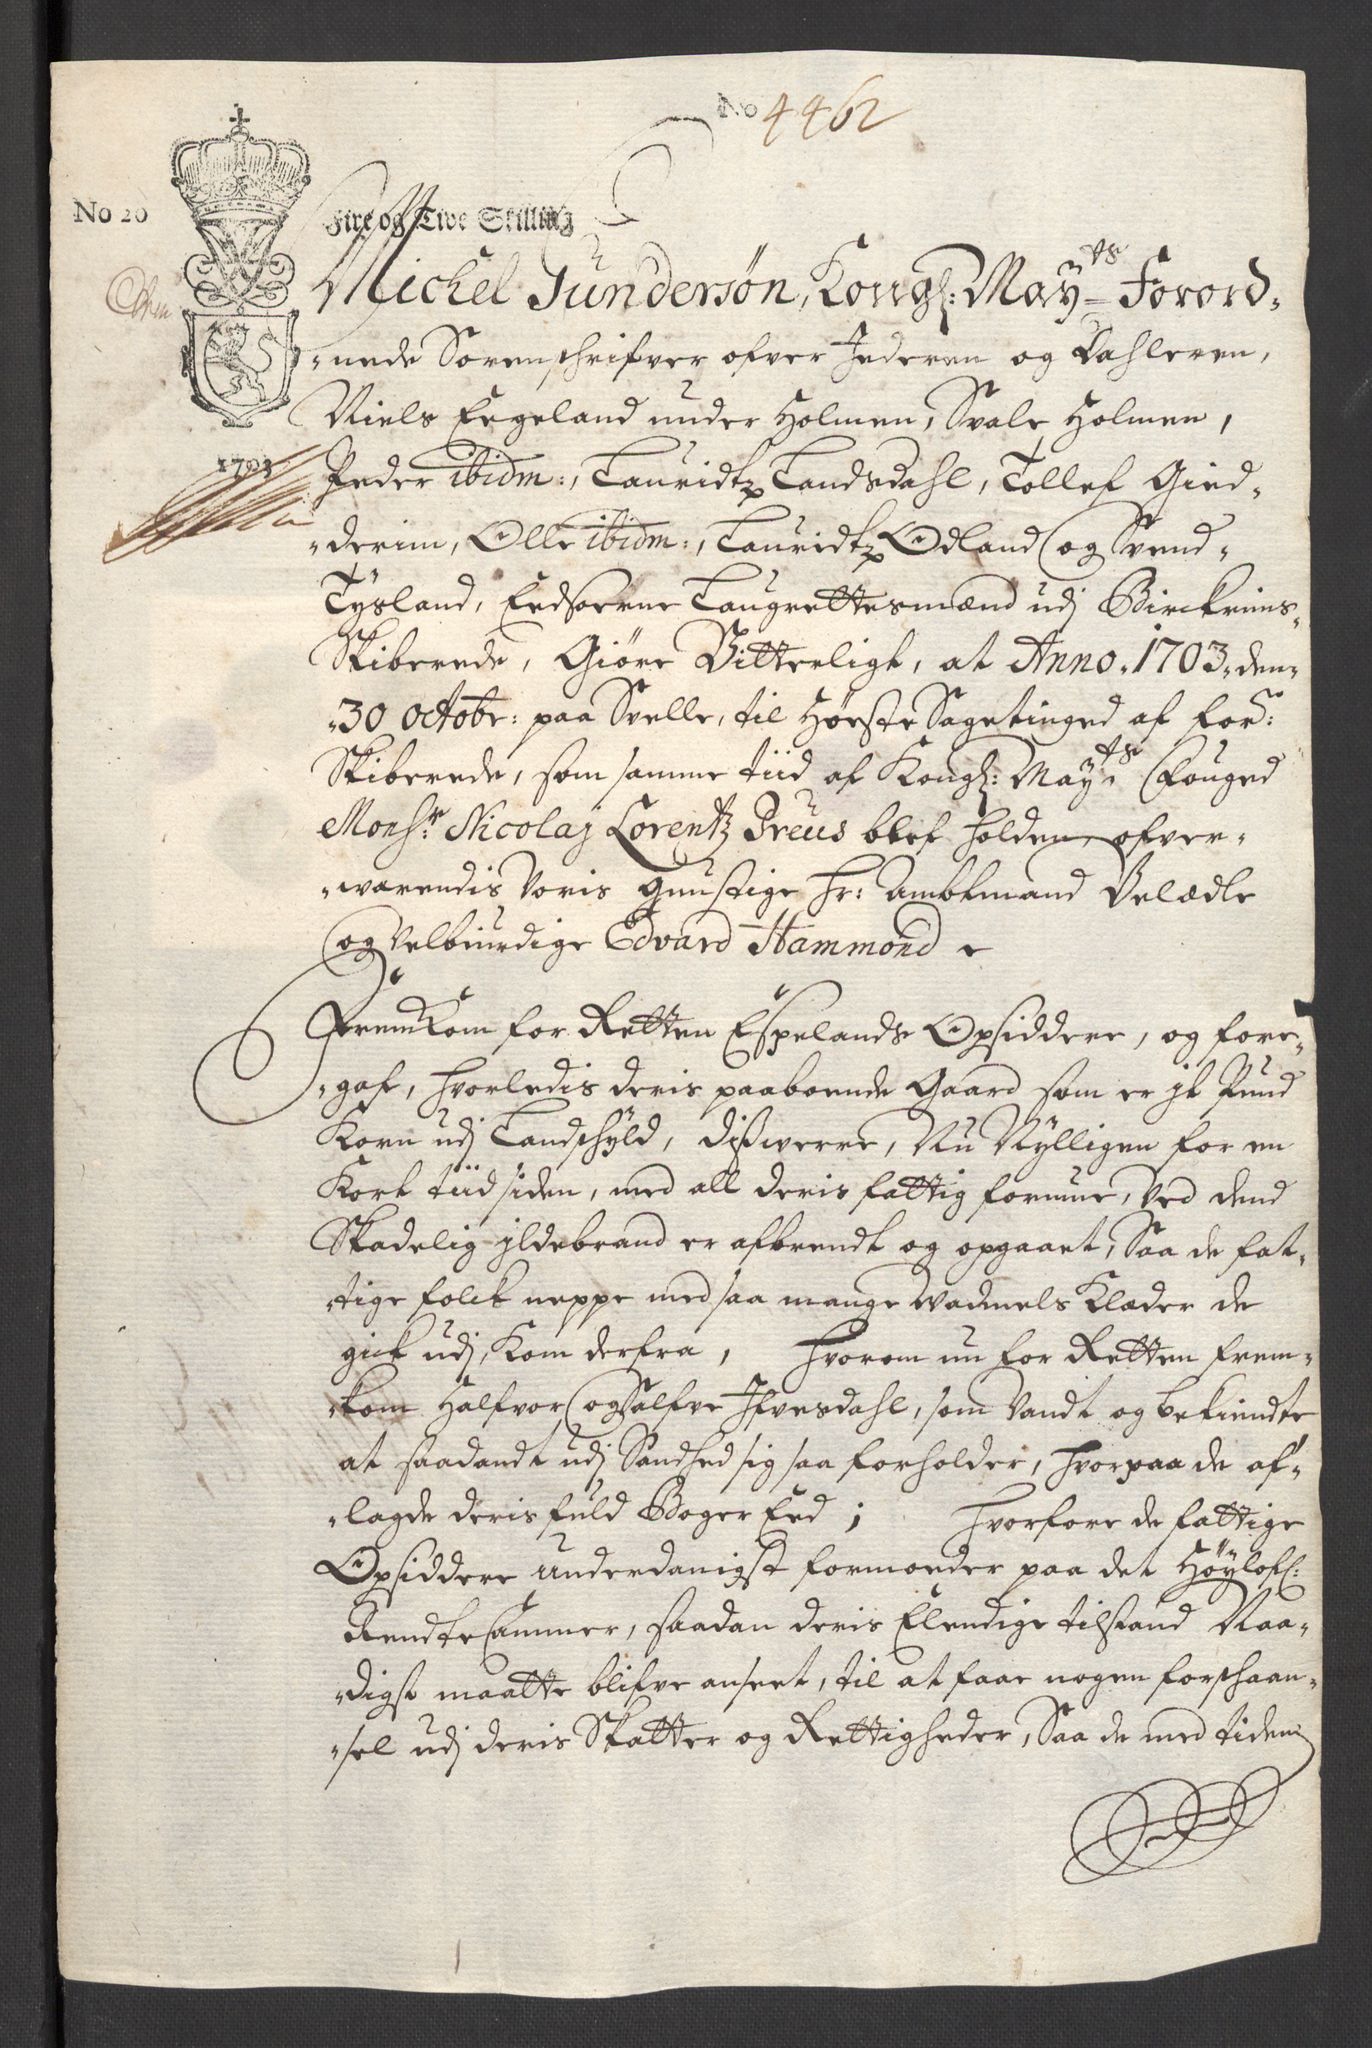 No 4462
No 20
Fire og Tive Skilling
1703
Michel Sundersøn, Kongl: May:ts Forord-
-nede Sorenschrifver ofver Jederen og Dahlerne,
Niels Eegeland under Holmen, Svale Holmen,
Peder ibidm:, Lauridtz Landsdahl, Tollef Gied-
-derim, Olle ibidm:, Lauridtz Odland og Svend
Tysland, Eedsoerne Laugrettesmænd udj Birckrims-
Skiberede, Giøre Vitterligt, at Anno. 1703. den-
-30 octobr: paa Svelle, til Høste Sagetinged af for:ne
Skiberede, som samme tiid af Kongl: May:ts Fouged
Monsr: Nicolaj Lorentz Preus blef holden, ofver-
-warendis Voris gunstige hr: Ambtmand Velædle
og Velbiurdige Edvard Hammond
Fremkom for Retten Espelands Opsiddere, og fore-
-gaf, hvorledis deris paaboende Gaard som er jt Pund
Korn udj Landschyld, dissverre, Nu Nylligen for en
Kort tiid siden, med all deris fattig formue, Ved dend
Skadelig jldebrand er afbrendt og opgaaet, Saa de fat-
-tige folck neppe med saa mange Vadmels Klæder de
gick udj, Kom derfra, hvorom nu for Retten frem-
-kom Halfvor og Salfve Ifvesdahl, som Vandt og bekiendte
at saadandt udj Sandhed sig saa forholder, hvorpaa de af-
-lagde deris fuld Boger Eed; hvorfore de fattige
Opsiddere underdanigst formoeder paa det Høylofl:
Rendte Cammer, saadan deris Elendige tilstand Naa-
-digst maatte blifve anseet, til at faae nogen forschaan-
-sel udj deris Skatter og Rettigheder, Saa de med tiden